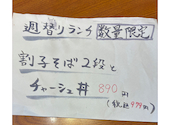 週替りランチ 数量限定
割子そば2段と
チャーシュ丼 890円
(税込979円)